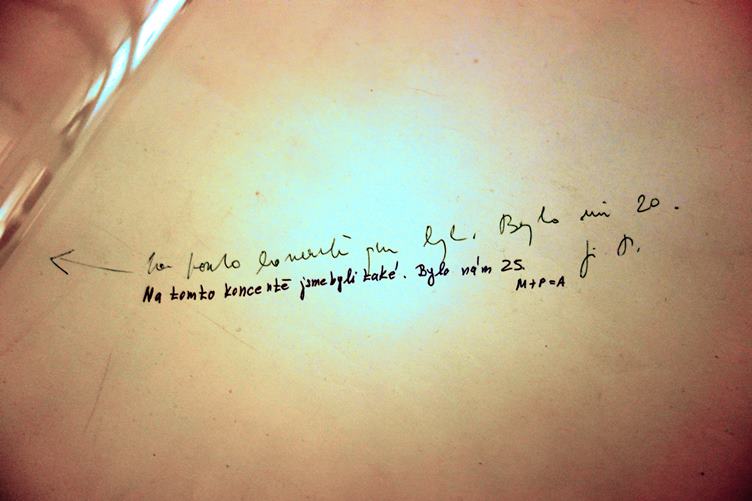 Na tomto koncertě jsem byl. Bylo mi 20.
Na tomto koncertě jsme byli také. Bylo nám 25.
M+P=A